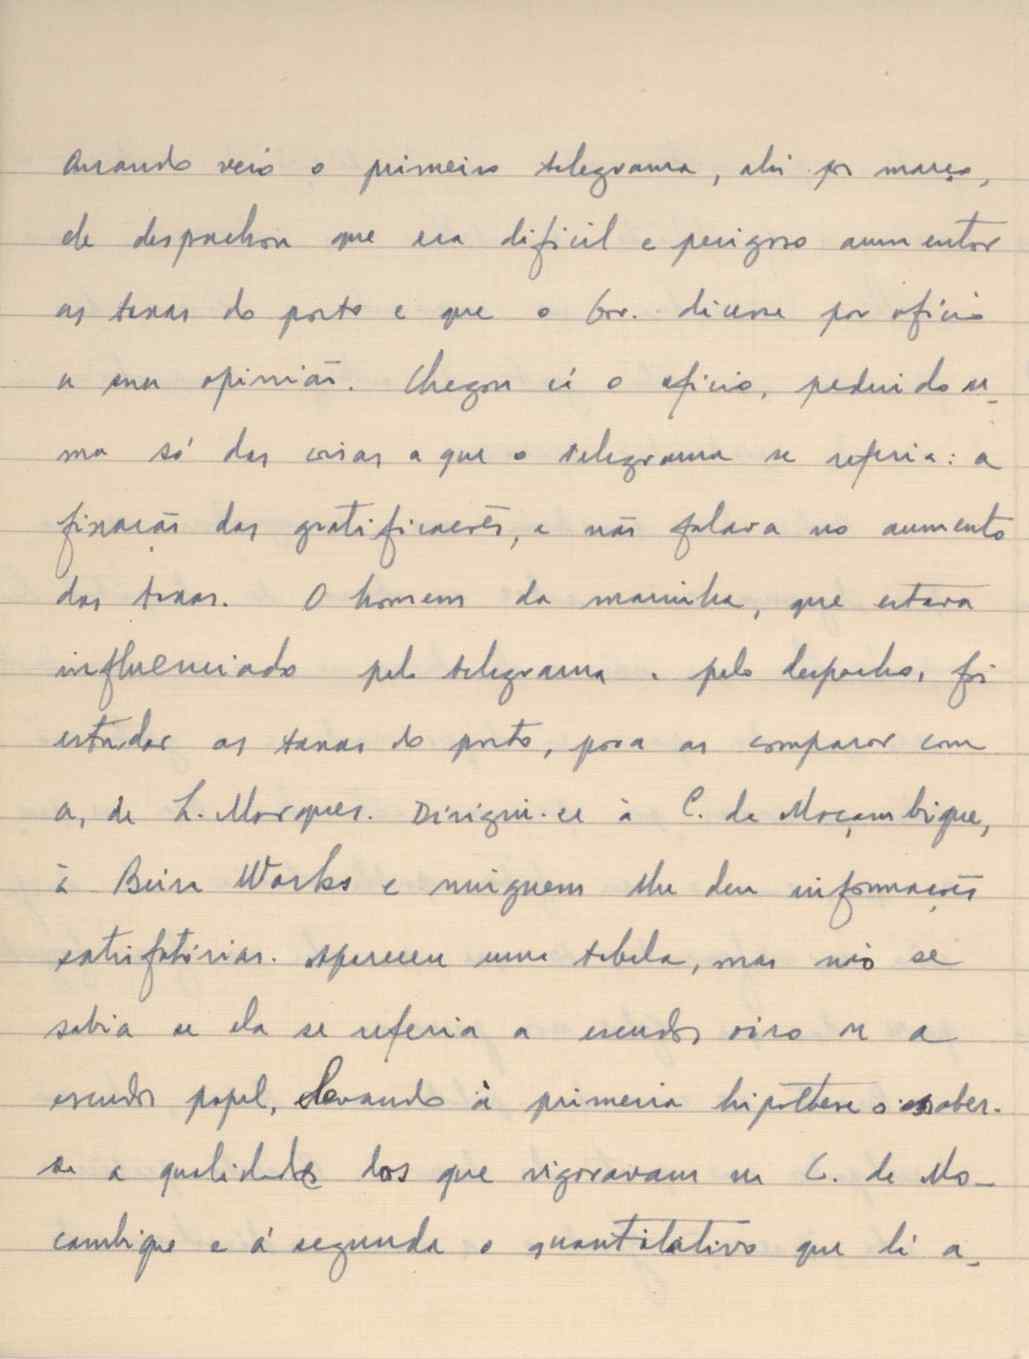 Quando veio o primeiro telegrama, ahi por março,
ele despachou que era dificil e perigoso aumentar
as taxas do porto e que o Gov. dicesse por ofício
a sua opinião. Chegou cá o oficio, pedindo u-
ma só das coisas a que o telegrama se referia: a
fixação das gratificações, e não falava no aumento
das taxas. O homem da marinha, que estava
influenciado pelo telegrama e pelo despacho, foi
estudar as taxas do porto, para as comparar com
as de L. Marques. Dirigiu-se à C. de Moçambique,
à Beira Works e ninguem lhe deu informações
satisfatórias. Apareceu uma tabela, mas não se
sabia se ela se referia a escudos oiro ou a
escudos papel, levando à primeira hipothese o saber-
se a qualidade dos que vigoravam na C. de Mo-
çambique e á segunda o quantitativo que lá a-